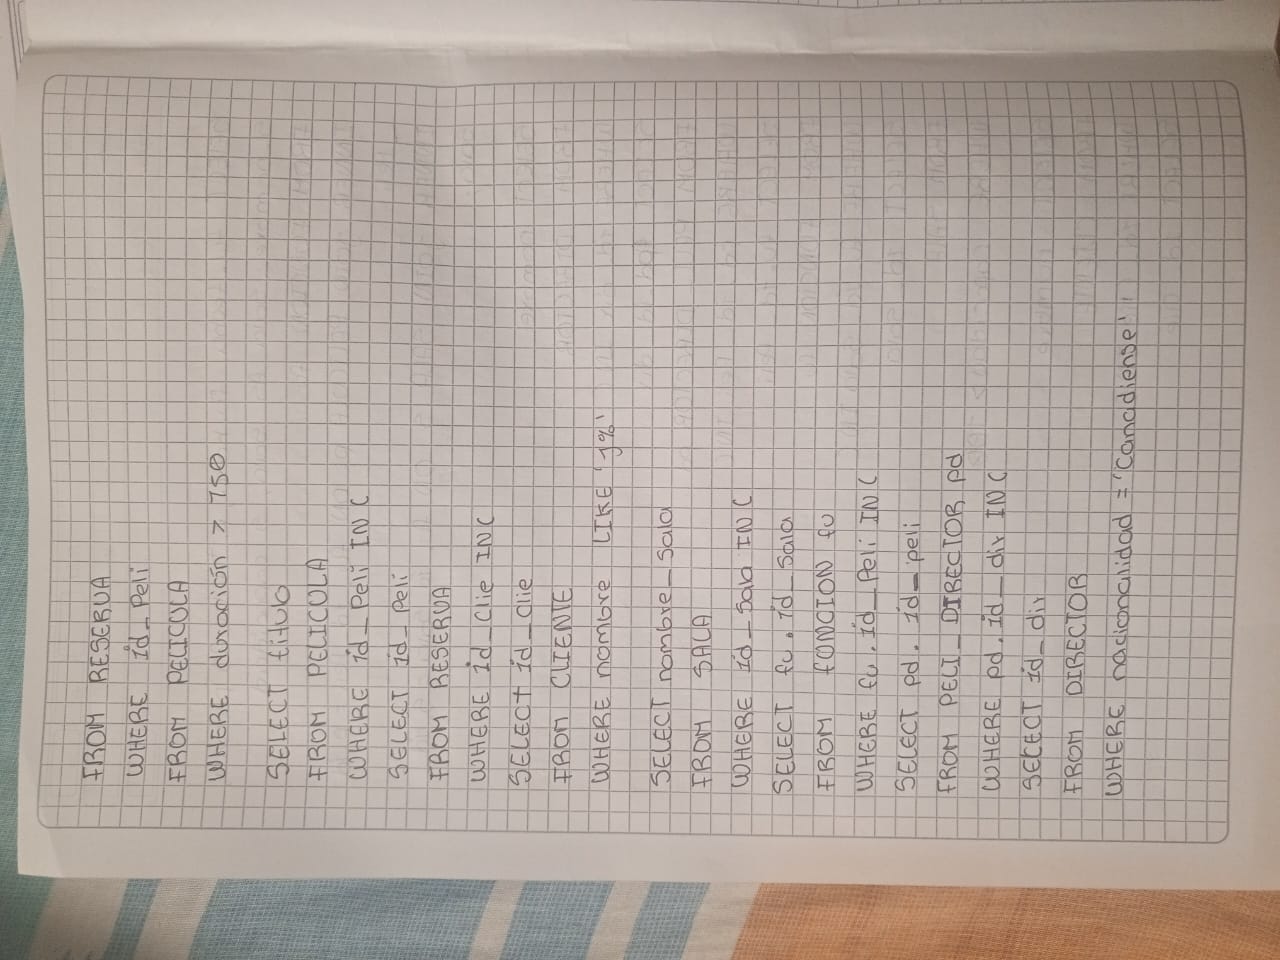 FROM RESERVA
WHERE id_Peli
FROM PELICULA
WHERE duración > 150
SELECT titulo
FROM PELICULA
WHERE id_Peli IN (
SELECT id_Peli
FROM RESERVA
WHERE id_Clie IN (
SELECT id_Clie
FROM CLIENTE
WHERE nombre LIKE 'J%'
SELECT nombre_Sala
FROM SALA
WHERE id_Sala IN (
SELECT fu.id_Sala
FROM FUNCION fu
WHERE fu.id_Peli IN (
SELECT pd.id_peli
FROM PELI_DIRECTOR pd
WHERE pd.id_dir IN (
SELECT id_dir
FROM DIRECTOR
WHERE nacionalidad = 'Canadiense'